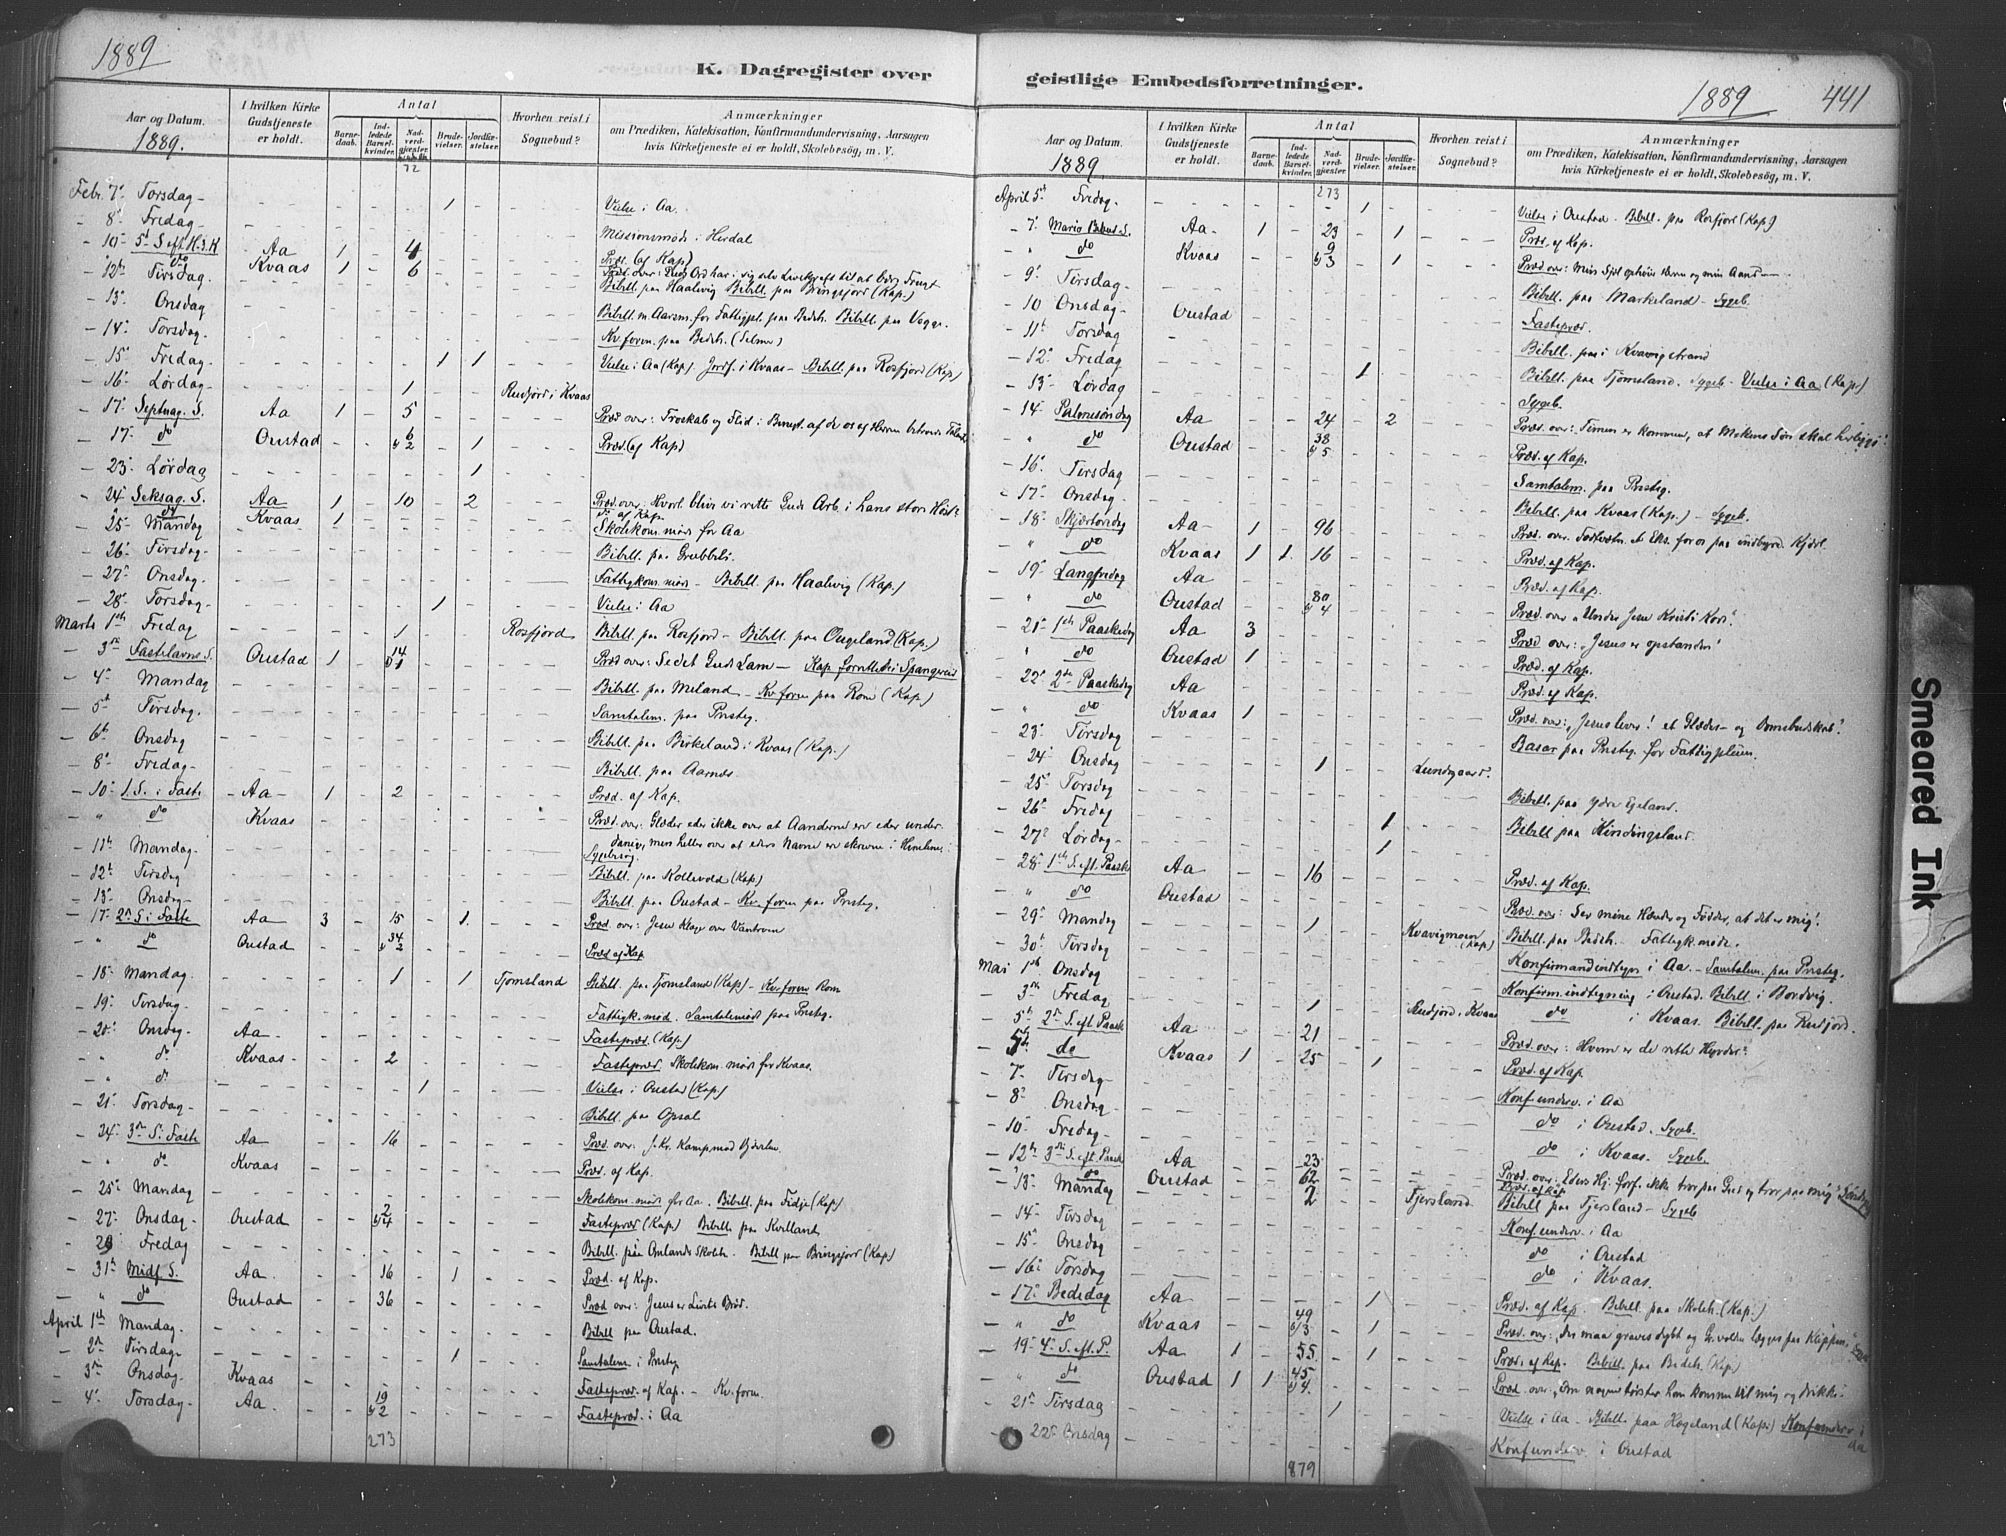 1889
K. Dagregister over
geistlige Embedsforretninger.
1889
441
Aar og Datum. 1889.
I hvilken Kirke Gudstjeneste er holdt.
Antal
Barnedaab.
Indledede Barselkvinder.
Nadverdgjæster.
Brudevielser.
Jordfæstelser.
Hvorhen reist i Sognebud?
Anmærkninger
om Prædiken, Katekisation, Konfirmandundervisning, Aarsagen
hvis Kirketjeneste ei er holdt, Skolebesøg, m. V.
72
Febr. 7de Torsdag - 1 Vielse i Aa.
- 8 Fredag - Missionsmøde i Herdal
- 10 5te S. eft. H.3.K Aa 1 - 4 Præd. (af Kap)
do Kvaas 1 - 6 Præd. over: Guds Ord har i sig selv Livskraft til at bære Frugt
- 12te Tirsdag. Bibell. paa Haalvig Bibell. paa Bringsjord (Kap.)
- 13 Onsdag Bibell. m. Aarsm. for Fattigpl. paa Bedeh. Bibell. paa Vegge.
- 14 Torsdag Kv. foren. paa Bedeh. (Selmer)
- 15 Fredag. 1 1 Vielse i Aa (Kap). Jordf. i Kvaas - Bibell. paa Rosfjord (Kap)
- 16 Lørdag - 1 Rudjord i Kvaas
- 17 Septuag. S. Aa 1 - 5 Præd. over: Troskab og Flid i Benyt. af de os af Herren betroede
- 17 do Oustad 6 2 1 Præd. (af Kap)
- 23 Lørdag 1
- 24 Seksag. S. Aa 1 - 10 - 2 Præd. over: Hvorl. blive vi rette Guds Arb. i hans store Høst?
do Kvaas 1 Do af Kap.
- 25 Mandag Skolekom. møde for Aa
- 26 Tirsdag - Bibell. paa Grubbeli
- 27 Onsdag - Fattigkom. møde - Bibell. paa Haalvig (Kap.)
- 28 Torsdag - 1 Vielse i Aa
Marts 1ste Fredag 1 Rosfjord Bibell. paa Rosfjord - Bibell. paa Ougeland (Kap.)
- 3die Fastelavns S. Oustad 1 14 1 Præd. over: Se det Guds Lam - Kap. forrettede i Spangereid
- 4 Mandag Bibell. paa Meland - Kv. foren paa Rom (Kap.)
- 5te Tirsdag. Samtalem. paa Prsteg.
- 6te Onsdag Bibell. paa Birkeland i Kvaas (Kap.)
- 8 Fredag - Bibell. paa Aarnes
- 10 1. S. i Faste - Aa - 1 - 2 Præd. af Kap.
- " do Kvaas Præd. over: Glæder eder ikke over at Aanderne ere eder under-
danige, men heller over at eders Navne ere skrevne i Himlene.
- 11te Mandag - Sygebesøg
- 12te Tirsdag Bibell. paa Kollevold (Kap.)
- 13 Onsdag - Bibell. paa Oustad - Kv. foren paa Prsteg.
- 17 2den S. i Faste Aa 3 - 15 - 1. Præd. over: Jesu Klage over Vantroen
- " do Oustad 34 2 Præd. af Kap
- 18 Mandag 1 1 Tjomsland Bibell. paa Tjomsland (Kap) - Kv. foren Rom
- 19 Tirsdag - Fattigk. møde. Samtalemøde paa Prsteg.
- 20 Onsdag Aa - Fastepræd. (Kap.)
- " do Kvaas - 2 Fastepræd. Skolekom. møde for Kvaas.
- " do 1 Vielse i Oustad (Kap.)
- 21 Torsdag - Bibell. paa Opsal
- 24 3die S. i Faste Aa 16 Præd. over: J. Kr. Kamp mod Djævelen
- " do Kvaas Præd. af Kap.
- 25 Mandag Skolekom. møde for Aa. Bibell. paa Fidje (Kap.)
- 27 Onsdag - Oustad 2 4 Fastepræd. (Kap.) Bibell. paa Kvilland
- 29 Fredag Bibell. paa Omlands Skoleh. Bibell. paa Bringsjord (Kap.)
- 31te Midf. S. Aa 16 - 1 Præd. af Kap.
- " do Oustad 36 Præd. over: Jesus er Livets Brød.
April 1ste Mandag. Bibell. paa Oustad.
- 2den Tirsdag - 1 Samtalem. i Prsteg
- 3die Onsdag. Kvaas Fastepræd. af Kap. - Kv. foren
- 4 Torsdag - Aa 19 2 Fastepræd. i Aa
273
Aar og Datum. 1889
I hvilken Kirke Gudstjeneste er holdt.
Antal
Barnedaab.
Indledede Barselkvinder.
Nadverdgjæster.
Brudevielser.
Jordfæstelser.
Hvorhen reist i Sognebud?
Anmærkninger
om Prædiken, Katekisation, Konfirmandundervisning, Aarsagen
hvis Kirketjeneste ei er holdt, Skolebesøg, m. V.
273
April 5te Fredag. 1 Vielse i Oustad. Bibell. paa Rosfjord (Kap.)
- 7 Mariæ Bebud. S. Aa - 1 - 23 - 1 Præd. af Kap.
" do Kvaas 9 3 - 1 Præd. over: Min Sjæl ophøier Herren og min Aand
- 9 Tirsdag - Bibell. paa Markeland - Sygeb.
- 10 Onsdag - Oustad Fastepræd.
- 11te Torsdag Bibell. paa i Kvavigstrand
- 12 Fredag 1 Bibell. paa Tjomsland. Sygeb. - Vielse i Aa (Kap.)
- 13 Lørdag Sygeb.
- 14 Palmesøndag Aa 24 - 2 Præd. over: Timen er kommen, at Mskens Søn skal herliggj.
" do Oustad 38 5 Præd. af Kap.
- 16 Tirsdag Samtalem. paa Prsteg.
- 17 Onsdag - Bibell. paa Kvaas (Kap.) - Sygeb.
- 18 Skjærtorsdag Aa - 1 96 Præd. over: Fodtvætn. et Eks. for os paa indbyrd. Kjærl.
" do Kvaas 1 1. 16 Præd. af Kap.
- 19 Langfredag Aa Præd. af Kap.
" do Oustad 80 4 Præd. over "Under Jesu Kristi Kors"
- 21 1ste Paaskedag Aa 3 Præd over: "Jesus er opstanden"
" do Oustad 1 Præd. af Kap.
- 22 2den Paaskedag Aa Præd. af Kap.
" do Kvaas 1 Præd. over: "Jesus lever! et Glædes- og Omvendelsesbudskab".
- 23 Tirsdag - Basar paa Prsteg. for Fattigpleien.
- 24 Onsdag 1 Lundegaard.
- 25 Torsdag Bibell. paa Ydre Egeland.
- 26 Fredag 1 Bibell paa Hindingsland
- 27 Lørdag - 1
- 28 1ste S. eft. Paaske Aa 16 Præd. af Kap.
" do Oustad Præd. over: Ser mine Hænder og Fødder, at det er mig!
- 29 Mandag 1 Kvavigmoen (Kap) Bibell. paa Bedeh. Fattigk. møde.
- 30 Tirsdag Konfirmandindtegn i Aa. - Samtalem. paa Prsteg.
Mai 1ste Onsdag Konfirm. indtegning i Oustad. Bibell. i Bordvig.
- 3die Fredag 1 Rudjord i Kvaas do i Kvaas. Bibell. paa Rudjord.
- 5te 2den S. eft. Paaske Aa 21 Præd. over: Hvem er de rette Hyrder?
- 5te do Kvaas 1 - 25 - 1 Præd. af Kap.
- 7 Tirsdag - Konf. underv. i Aa
- 8 Onsdag - do i Oustad. Sygeb.
- 10 Fredag - do i Kvaas. Sygeb.
- 12te 3die S. eft. Paaske Aa 23 Præd. over: Eders Hj. forf. ikke tror paa Gud og tror paa mig!
do Oustad 62 Præd. af Kap
- 13 Mandag 2 Tjersland Bibell. paa Tjersland - Sygeb
- 14 Tirsdag Konf. underv. i Aa
- 15 Onsdag do i Oustad
- 16 Torsdag do i Kvaas.
- 17 Bededag Aa 1 Præd. af Kap. Bibell. paa Skoleh. (Kap.)
" do Kvaas 49 3 - 1 Præd. over: "Der maa graves dybt og Gr.volden lægges paa Klippen."
- 19 4. S. eft. P. Aa 1 - 55 - 1 Præd. af Kap. Bibell. paa Bedeh. (Kap)
" do Oustad 1 1 45 4. Præd. over: "Om nogen tørster han komme til mig og drikke"
- 21 Tirsdag 1 Vielse i Aa - Bibell. paa Hageland (Kap.) Konf. underv. i Aa
- 22 Onsdag Konf. underv. i Oustad
879
Smeared Ink